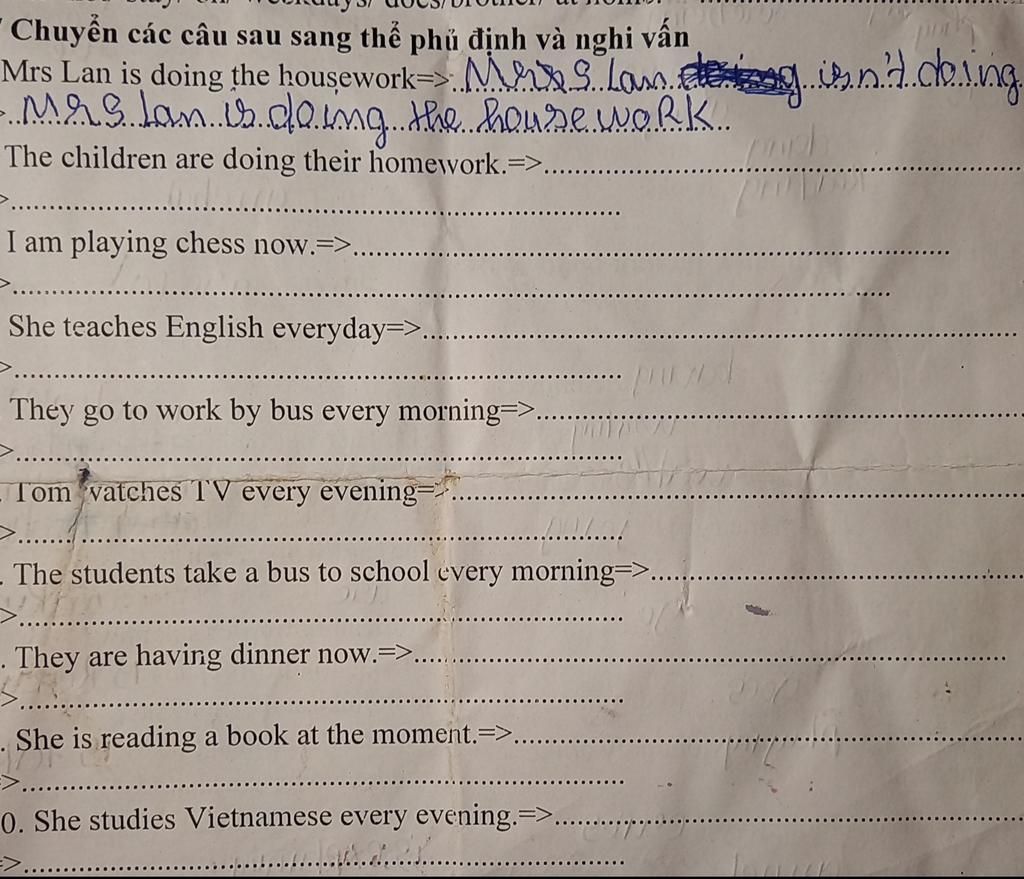 stay/ on/ weekdays/ does/brother/ at home.
Chuyển các câu sau sang thể phủ định và nghi vấn
Mrs Lan is doing the housework=> Mrs Lan isn't doing
Mrs Lan is doing the housework
The children are doing their homework.=>
>
I am playing chess now.=>
>
She teaches English everyday=>
>
They go to work by bus every morning=>
>
Tom watches TV every evening=>
>
. The students take a bus to school every morning=>
>
. They are having dinner now.=>
>
. She is reading a book at the moment.=>
=>
0. She studies Vietnamese every evening.=>
=>